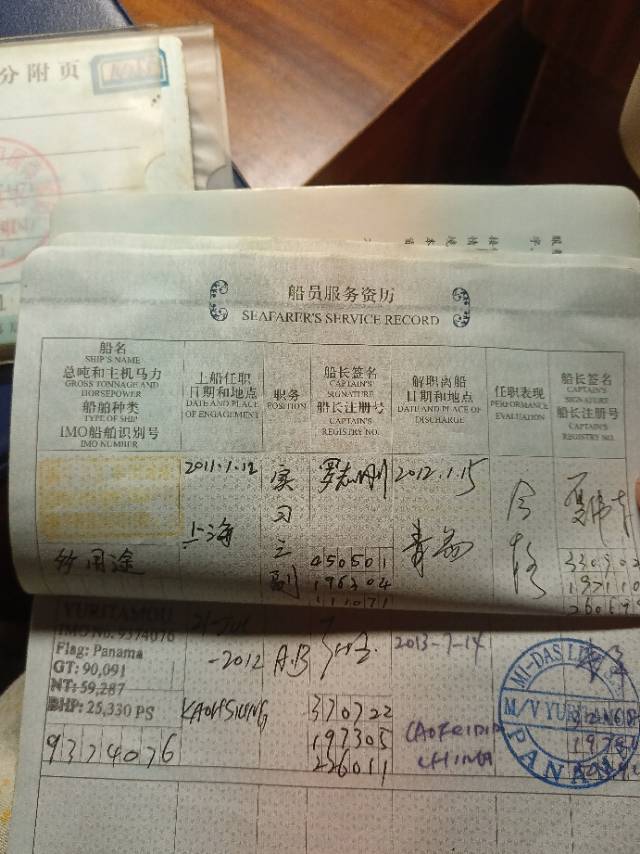 分附页
船员服务资历
SEAFARER'S SERVICE RECORD
船名
SHIP'S NAME
总吨和主机马力
GROSS TONNAGE AND
HORSEPOWER
船舶种类
TYPE OF SHIP
IMO船舶识别号
IMO NUMBER
上船任职
日期和地点
DATE AND PLACE
OF ENGAGEMENT
职务
POSITION
船长签名
CAPTAIN'S
SIGNATURE
船长注册号
CAPTAIN'S
REGISTRY NO.
解职离船
日期和地点
DATE AND PLACE OF
DISCHARGE
任职表现
PERFORMANCE
EVALUATION
船长签名
CAPTAIN'S
SIGNATURE
船长注册号
CAPTAIN'S
REGISTRY NO.
2011.1.12
上海
实习三副
450501
196304
2012.1.15
青岛
合格
多用途
YURITAMOU
IMO No. 9374076
Flag: Panama
GT: 90,091
NT: 59,287
BHP: 25,330 PS
9374076
-2012
KAOHSIUNG
A.B
370722
197305
226011
2013-7-14
CHINA
MI-DAS LINE
M/V YURI
PANAMA